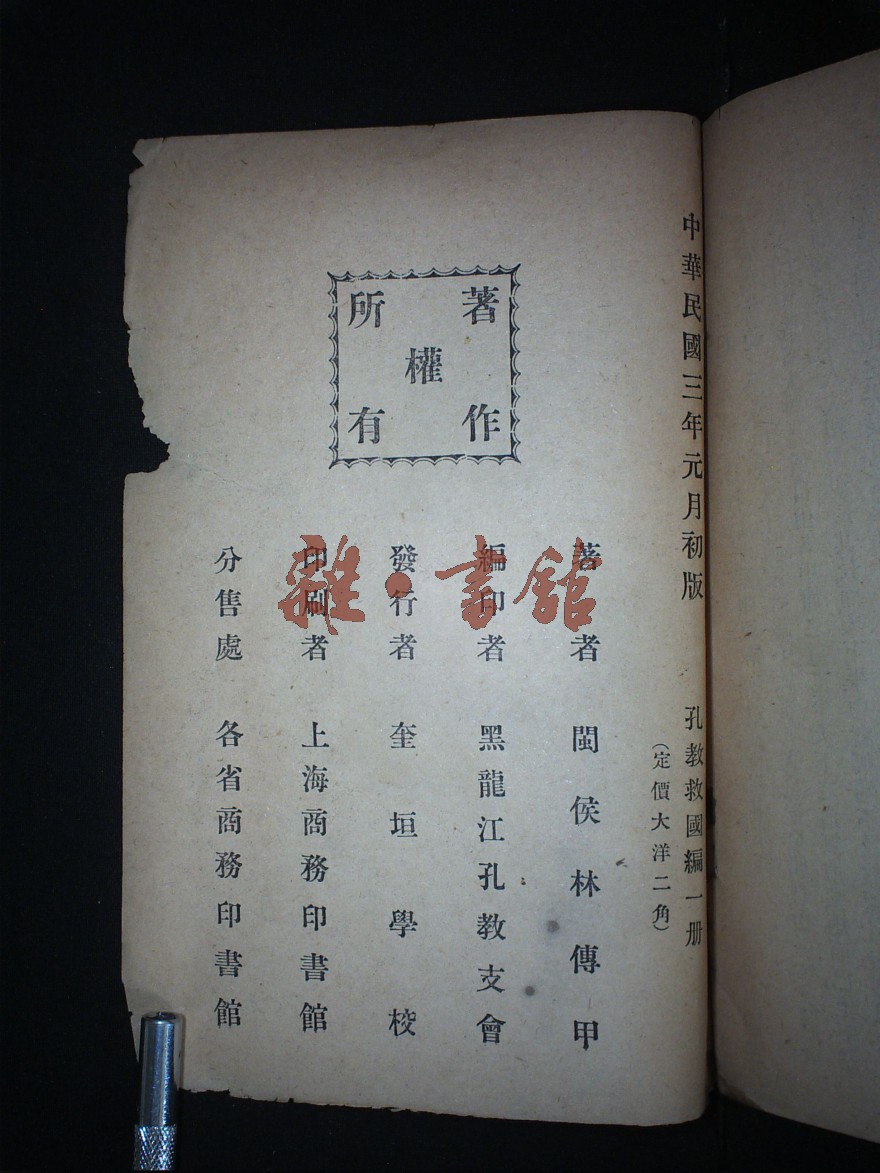 中華民國三年元月初版
孔教救國編一册
(定價大洋二角)
著作權所有
著者 閩侯林傳甲
編印者 黑龍江孔教支會
發行者 奎垣學校
印刷者 上海商務印書館
分售處 各省商務印書館
雜·書館